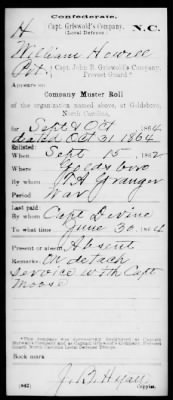 Confederate.
H Capt. Griswold's Company, N.C.
(Local Defense.)
William Howell
Pvt., Capt. John B. Griswold's Company,
Provost Guard.*
Appears on
Company Muster Roll
of the organization named above, at Goldsboro,
North Carolina,
for Sept & Oct, 1864
dated Oct 31 1864
Enlisted:
When Sept 15, 1862
Where Goldsboro
By whom Granger
Period War
Last paid:
By whom Capt Devine
To what time June 30, 1864
Present or absent Absent
Remarks: On detach
service with Capt
Moose
*This company was successively designated as Captain
Griswold's Company and as Captain Griswold's Company, Provost
Guard, North Carolina Local Defense Troops.
Book mark
(642)
Copyist.